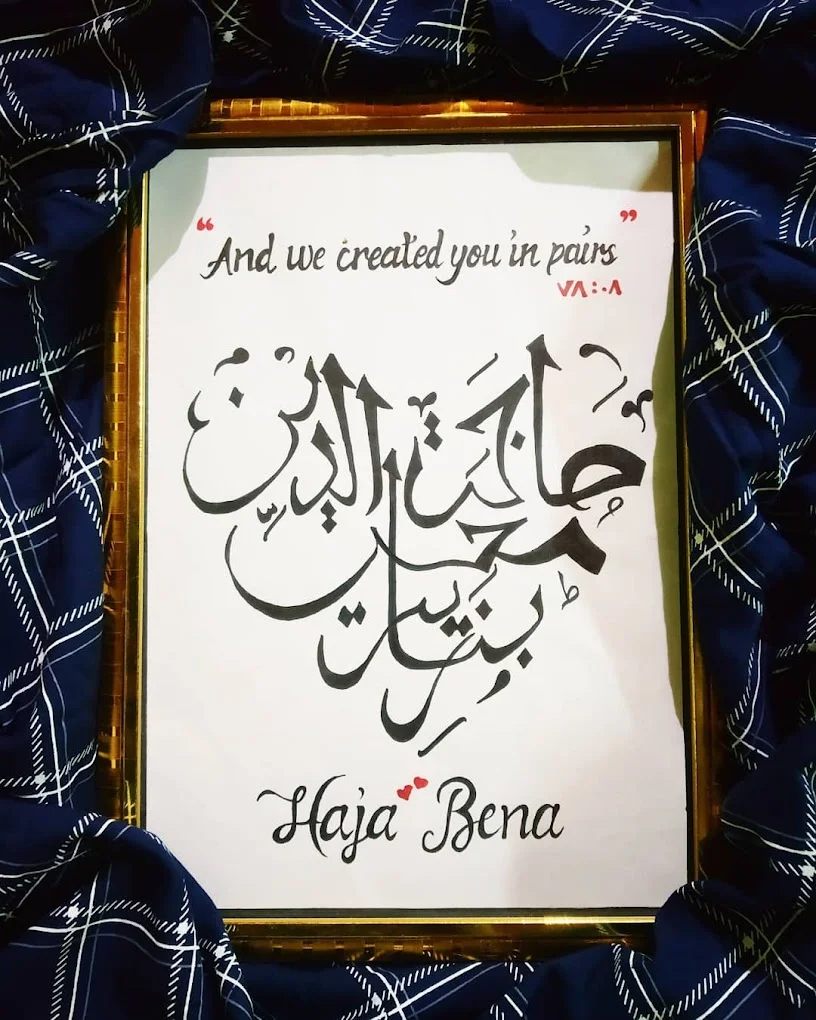 “And we created you in pairs”
٧٨:٠٨
حاجة الدين
محمد
Haja Bena